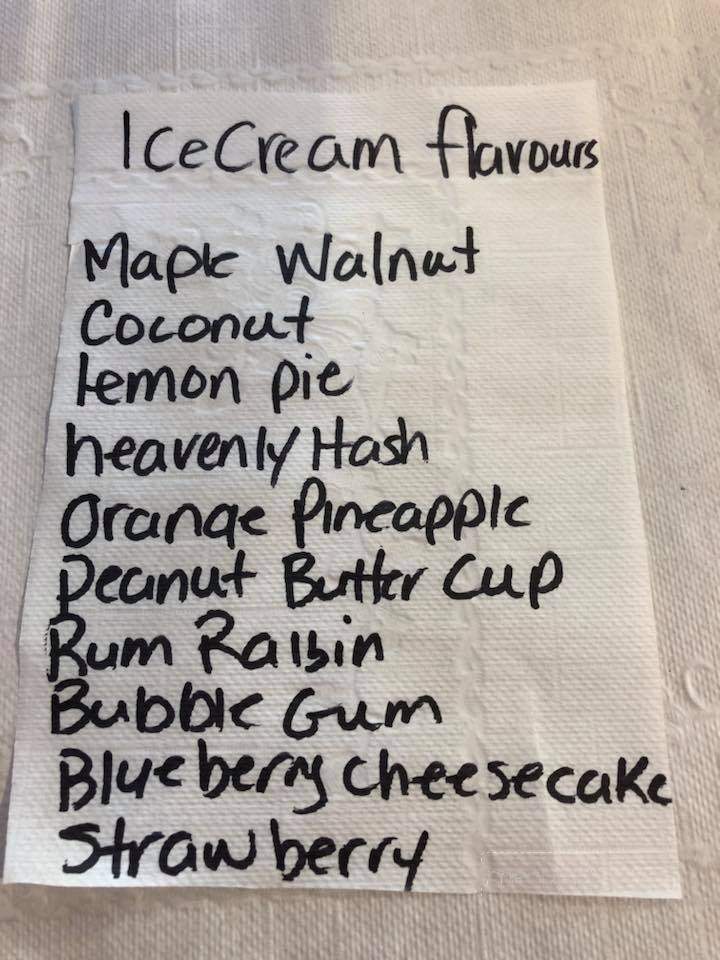 Ice Cream flavours
Maple Walnut
Coconut
lemon pie
heavenly Hash
Orange Pineapple
Peanut Butter Cup
Rum Raisin
Bubble Gum
Blueberry Cheesecake
Strawberry